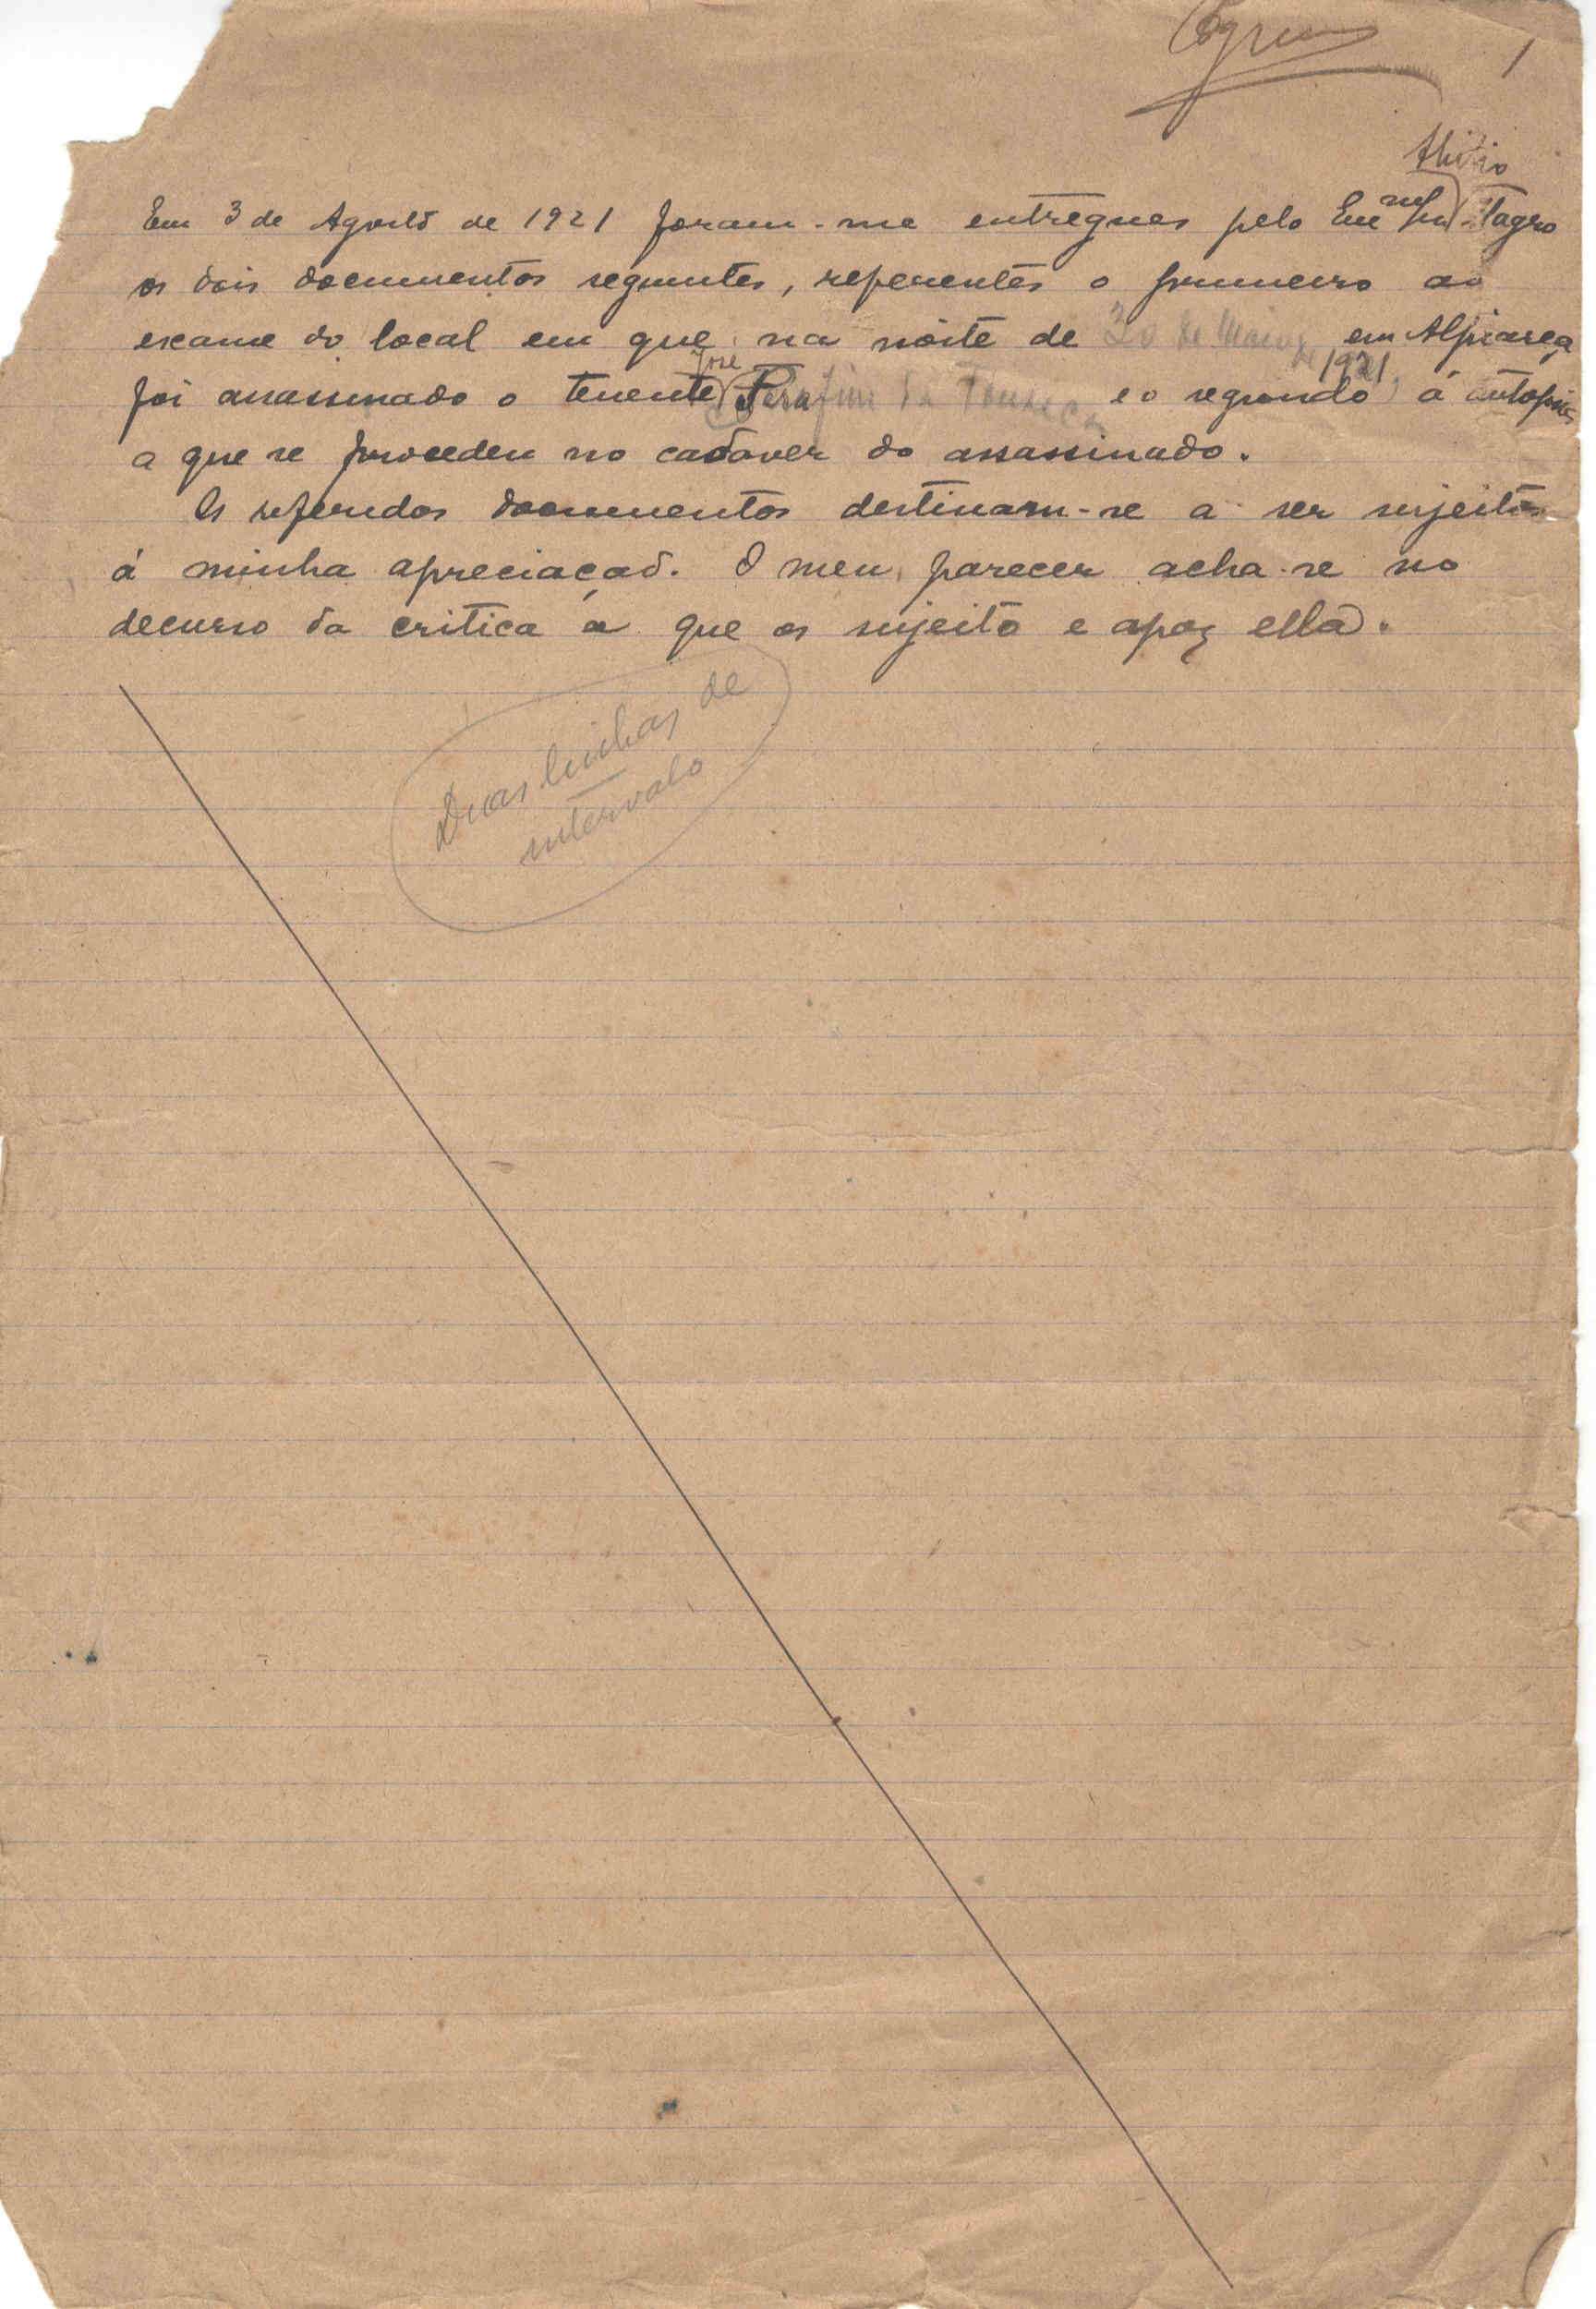 1
Em 3 de Agosto de 1921 foram-me entregues pelo Alvio Tagro
os dois documentos seguintes, referentes o primeiro ao
exame do local em que na noite de 30 de Maio de 1921, em Alpiarça
foi assassinado o tenente José Serafim da Fonseca e o segundo á autopsia
a que se procedeu no cadaver do assassinado.
Os referidos documentos destinam-se a ser sujeitos
á minha apreciação. O meu parecer acha-se no
decurso da critica a que os sujeito e apoz ella.
Duas linhas de
intervalo